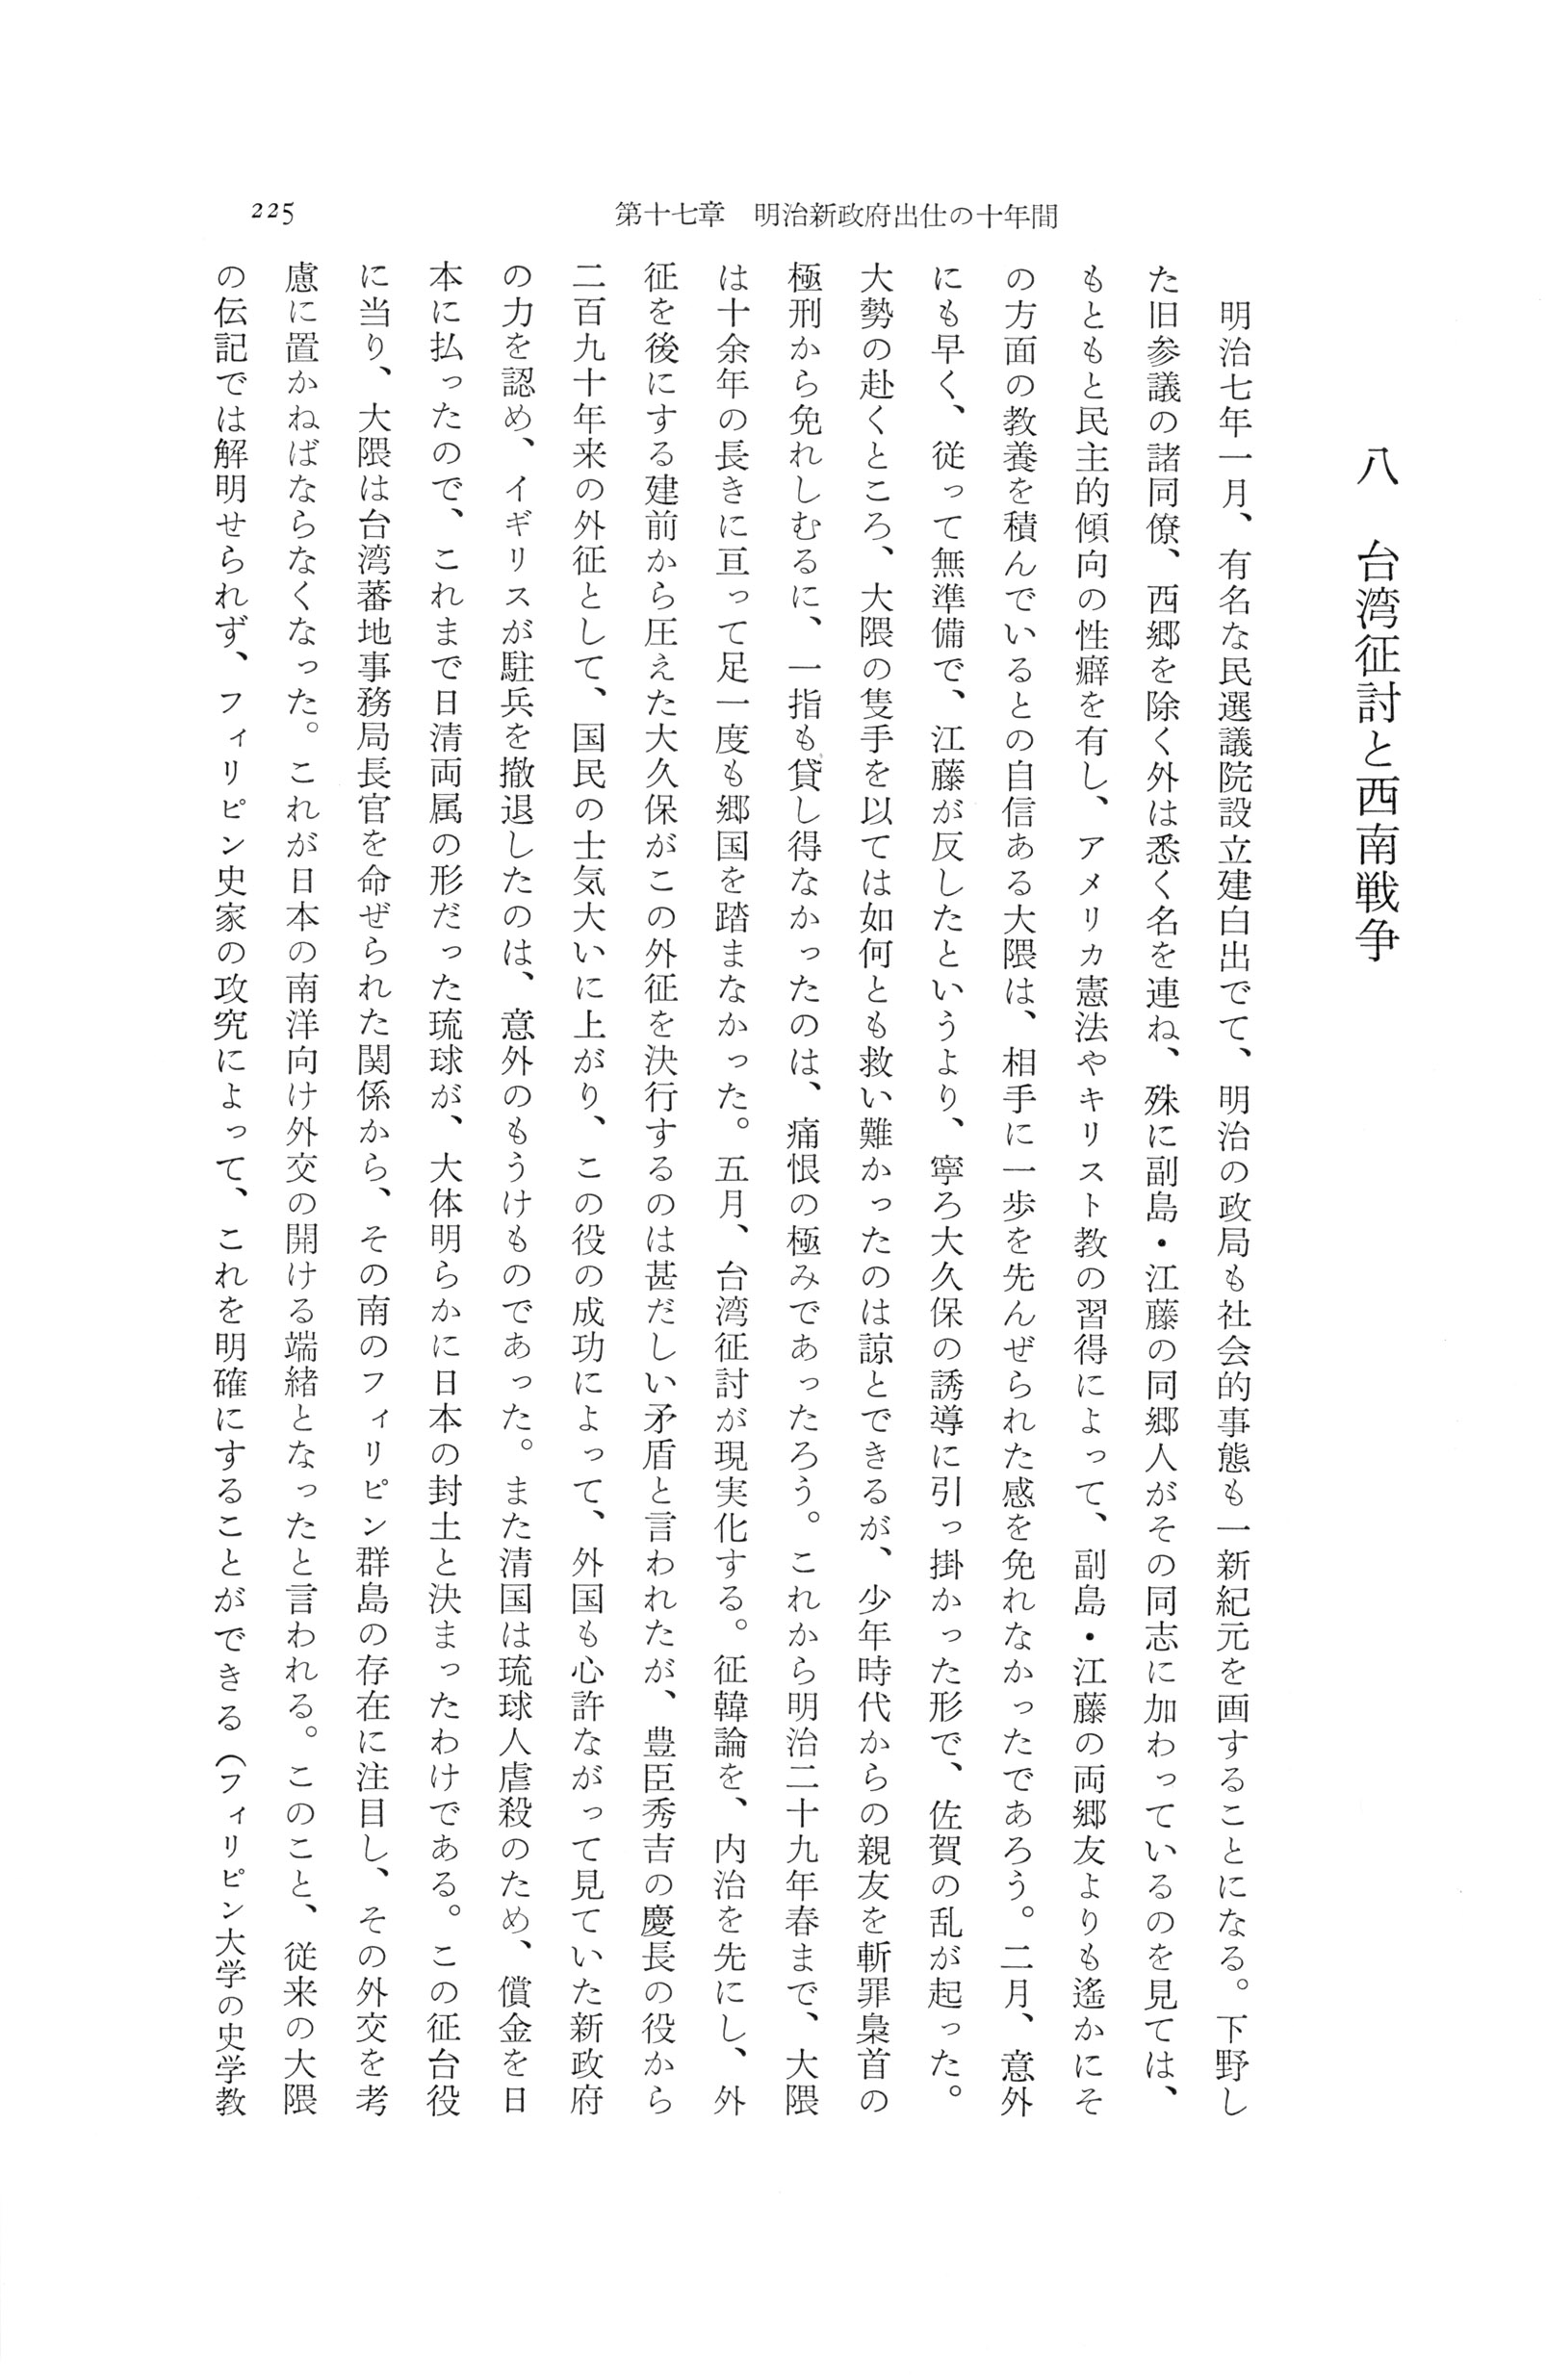 第十七章　明治新政府出仕の十年間
225
八　台湾征討と西南戦争
　明治七年一月、有名な民選議院設立建白出でて、明治の政局も社会的事態も一新紀元を画することになる。下野し
た旧参議の諸同僚、西郷を除く外は悉く名を連ね、殊に副島・江藤の同郷人がその同志に加わっているのを見ては、
もともと民主的傾向の性癖を有し、アメリカ憲法やキリスト教の習得によって、副島・江藤の両郷友よりも遙かにそ
の方面の教養を積んでいるとの自信ある大隈は、相手に一歩を先んぜられた感を免れなかったであろう。二月、意外
にも早く、従って無準備で、江藤が反したというより、寧ろ大久保の誘導に引っ掛かった形で、佐賀の乱が起った。
大勢の赴くところ、大隈の隻手を以ては如何とも救い難かったのは諒とできるが、少年時代からの親友を斬罪梟首の
極刑から免れしむるに、一指も貸し得なかったのは、痛恨の極みであったろう。これから明治二十九年春まで、大隈
は十余年の長きに亘って足一度も郷国を踏まなかった。五月、台湾征討が現実化する。征韓論を、内治を先にし、外
征を後にする建前から圧えた大久保がこの外征を決行するのは甚だしい矛盾と言われたが、豊臣秀吉の慶長の役から
二百九十年来の外征として、国民の士気大いに上がり、この役の成功によって、外国も心許ながって見ていた新政府
の力を認め、イギリスが駐兵を撤退したのは、意外のもうけものであった。また清国は琉球人虐殺のため、償金を日
本に払ったので、これまで日清両属の形だった琉球が、大体明らかに日本の封土と決まったわけである。この征台役
に当り、大隈は台湾蕃地事務局長官を命ぜられた関係から、その南のフィリピン群島の存在に注目し、その外交を考
慮に置かねばならなくなった。これが日本の南洋向け外交の開ける端緒となったと言われる。このこと、従来の大隈
の伝記では解明せられず、フィリピン史家の攻究によって、これを明確にすることができる（フィリピン大学の史学教